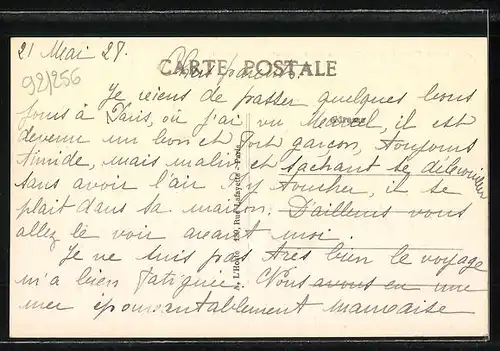 21 Mai 28.
CARTE POSTALE
92/256
Chers parents.
Je viens de passer quelques bons
jours à Paris, où j'ai vu Marcel, il est
devenu un bon et fort garçon, toujours
timide, mais malin et sachant se débrouiller
sans avoir l'air d'y toucher, il se
plait dans sa maison. D'ailleurs vous
allez le voir avant moi.
Je ne suis pas très bien le voyage
m'a bien fatiguée. Nous avons eu une
mer épouvantablement mauvaise
Rue Lafayette - Paris